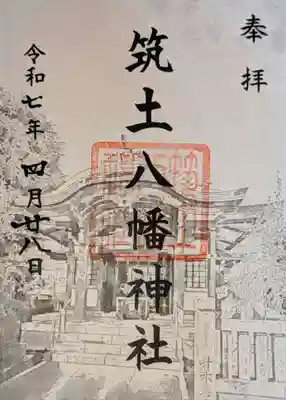 奉拝
筑土八幡神社
令和七年四月廿八日